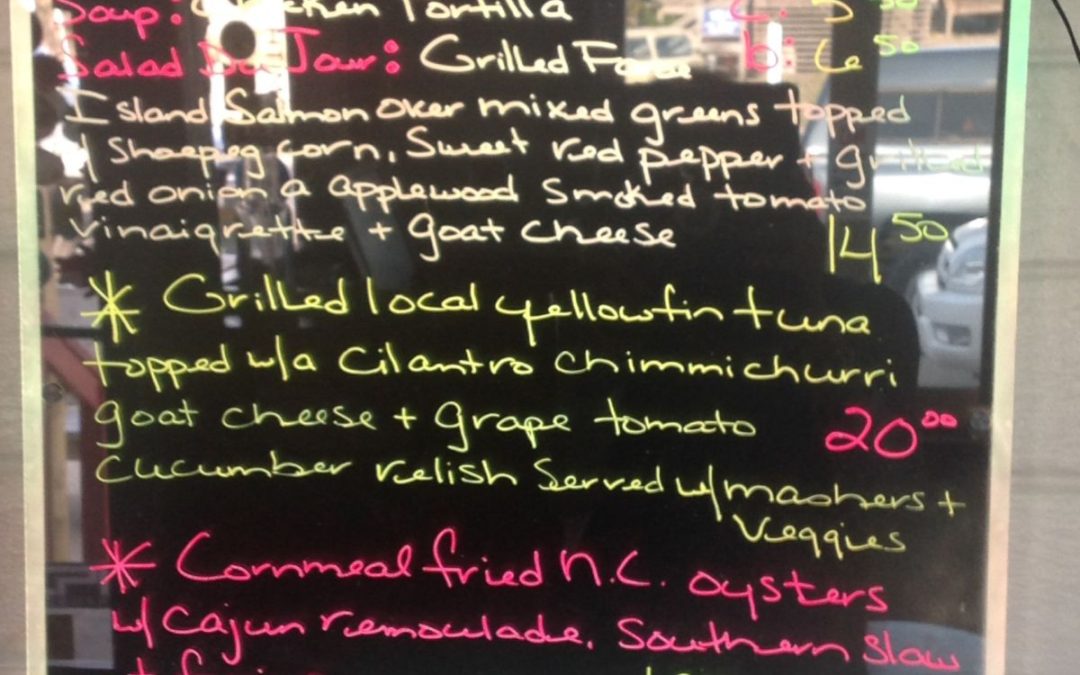 Soup: Chicken Tortilla C: 5 50
Salad Du Jour: Grilled Faroe b: 6 50
Island Salmon over mixed greens topped
w/ Shoepeg corn, Sweet red pepper + grilled
red onion a applewood Smoked tomato
vinaigrette + goat cheese 14 50
* Grilled local yellowfin tuna
topped w/a Cilantro Chimmichurri
goat cheese + grape tomato 20 00
cucumber relish Served w/ mashers +
Veggies
* Cornmeal fried N.C. oysters
w/ Cajun remoulade, Southern Slaw